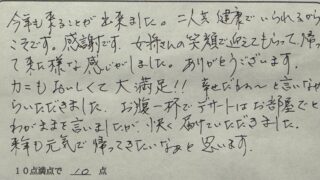 今年も来ることが出来ました。二人共健康でいられるから
こそです。感謝です。女将さんの笑顔で迎えてもらって、帰っ
て来た様な感じがしました。ありがとうございます。
カニもおいしくて大満足!! 幸せだねぇ〜と言いなが
らいただきました。お腹一杯でデザートはお部屋でと
わがままを言いましたが、快く届けていただきました。
来年も元気で帰ってきたいなぁと思います。
10点満点で 10 点